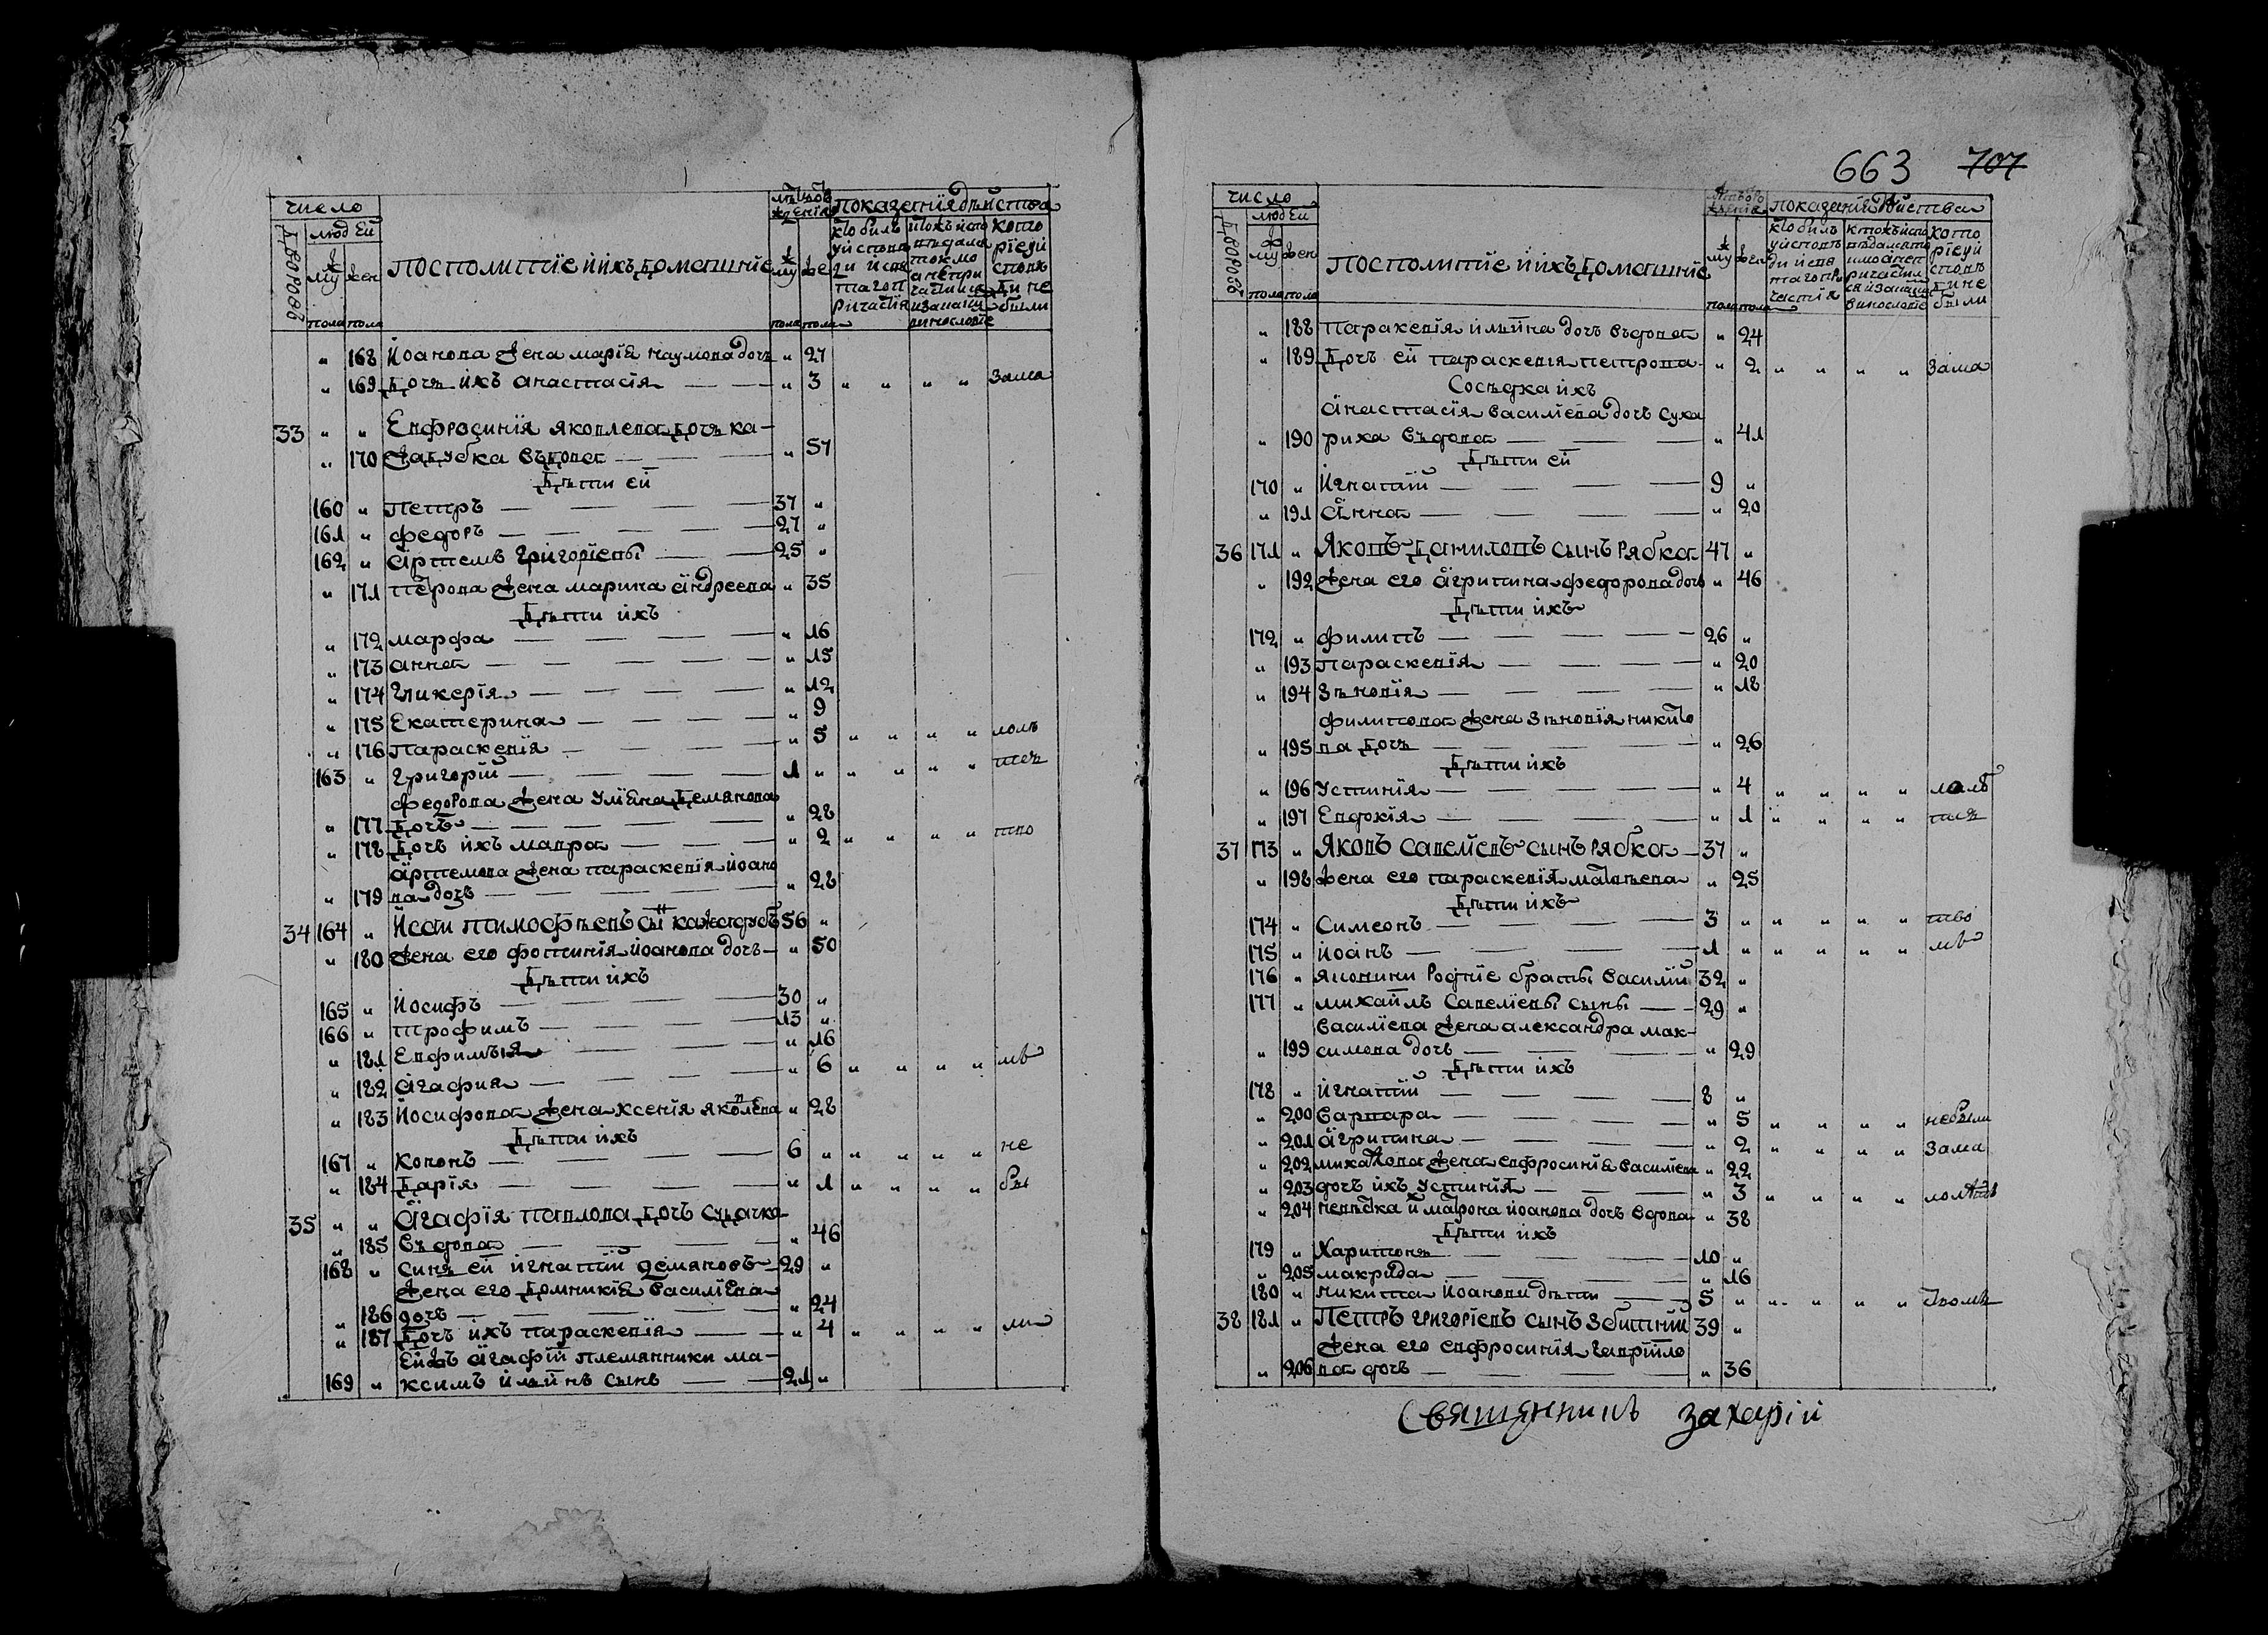 число
людей
дворовъ
муж пола
жен пола
посполитіе и ихъ домашніе
лѣта от рожденія
муж пола
жен пола
показанія дѣйства
кто былъ у исповѣди и святаго причастія
кто исповѣдался токмо а не причастился и за каким винословіе
которіе у исповѣди не были
" 168 Иоанова жена марія наумова дочъ " 27
" 169 дочъ ихъ анастасія — — " 3 " " " " Зама
33 " " Евфросинія яковлева дочъ ка-
" 170 жадубка въдова — — — " 57
дѣти ей
160 " Петръ — — — — 37 "
161 " федоръ — — — — 27 "
162 " артемъ григоріевы — — 25 "
" 171 петрова жена марина андреева " 35
дѣти ихъ
" 172 марфа — — — — " 16
" 173 анна — — — — " 15
" 174 гликерія — — — — " 12
" 175 Екатерина — — — " 9
" 176 Параскевія — — — " 5 " " " " лолѣ
163 " григорій — — — — 1 " " " " " тст
федорова жена уліяна демянова
" 177 дочъ — — — — " 28
" 178 дочъ ихъ мавра — — — " 2 " " " " тво
артемова жена параскевія иоано
" 179 ва дочъ — — — — " 28
34 164 " Исаи тимофѣевъ сынъ кажадубъ 56 "
" 180 жена его фотинія иоанова дочъ — " 50
дѣти ихъ
165 " Иосифъ — — — — 30 "
166 " трофимъ — — — — 13 "
" 181 Евфимія — — — " 16
" 182 агафия — — — — " 6 " " " " мв
" 183 Иосифова жена ксенія яковлева " 28
дѣти ихъ
167 " кононъ — — — — 6 " " " " " не
" 184 дарія — — — — " 1 " " " " бы
35 " " агафія павлова дочъ судачка
" 185 въдова — — — — " 46
168 " синъ ей игнатій демяновъ — 29 "
жена его домникія василіева
" 186 дочъ — — — — " 24
" 187 дочъ ихъ параскевія — — " 4 " " " " ли
Ейжъ агафіи племянники ма-
169 " ксимъ ильинъ сынъ — — 21 "
663 707
число
людей
дворовъ
муж пола
жен пола
посполитіе и ихъ домашніе
лѣта от рожденія
муж пола
жен пола
показанія дѣйства
кто былъ у исповѣди и свята го причастія
кто исповѣдался токмо а не причастился и за каким винословіе
которіе у исповѣди не были
" 188 параскевія ильина дочъ въдова " 24
" 189 дочъ ей параскевія петрова — " 2 " " " " Зама
Сосѣдка ихъ
анастасія василіева дочъ суха
" 190 риха въдова — — — " 41
дѣти ей
170 " Игнатій — — — — 9 "
" 191 анна — — — — " 20
36 171 " Яковъ даниловъ сынъ рябка 47 "
" 192 жена его агрипина федорова дочъ " 46
дѣти ихъ
172 " филипъ — — — — 26 "
" 193 параскевія — — — " 20
" 194 Зѣновія — — — — " 18
филипова жена зѣновія никито
" 195 ва дочъ — — — — " 26
дѣти ихъ
" 196 Устинія — — — — " 4 " " " " лолѣ
" 197 Евдокія — — — — " 1 " " " " тст
37 173 " Яковъ савеліевъ сынъ рябка — 37 "
" 198 жена его параскевія матвѣева " 25
дѣти ихъ
174 " Симеонъ — — — — 3 " " " " " тво
175 " Иоанъ — — — — 1 " " " " " мв
176 " яковини роднїе браты василій 32 "
177 " михайлъ савеліевы сыны — — 29 "
василіева жена александра мак-
" 199 симова дочъ — — — " 29
дѣти ихъ
178 " игнатій — — — — 8 "
" 200 варвара — — — — " 5 " " " " небыли
" 201 агрипина — — — — " 2 " " " " Зама
" 202 михайлова жена евфросинія василіева " 22
" 203 дочъ ихъ устинія — — — " 3 " " " " лолѣтст
" 204 невѣстка их марфа иоанова дочъ вдова " 38
дѣти ихъ
179 " Харитонъ — — — — 10 "
" 205 макрида — — — — " 16
180 " никита иоанови дѣти — — 5 " " " " "
38 181 " Петръ григоріевъ сынъ збитній 39 "
жена его евфросинія гавріило
" 206 ва дочъ — — — — " 36
Священникъ Захарій